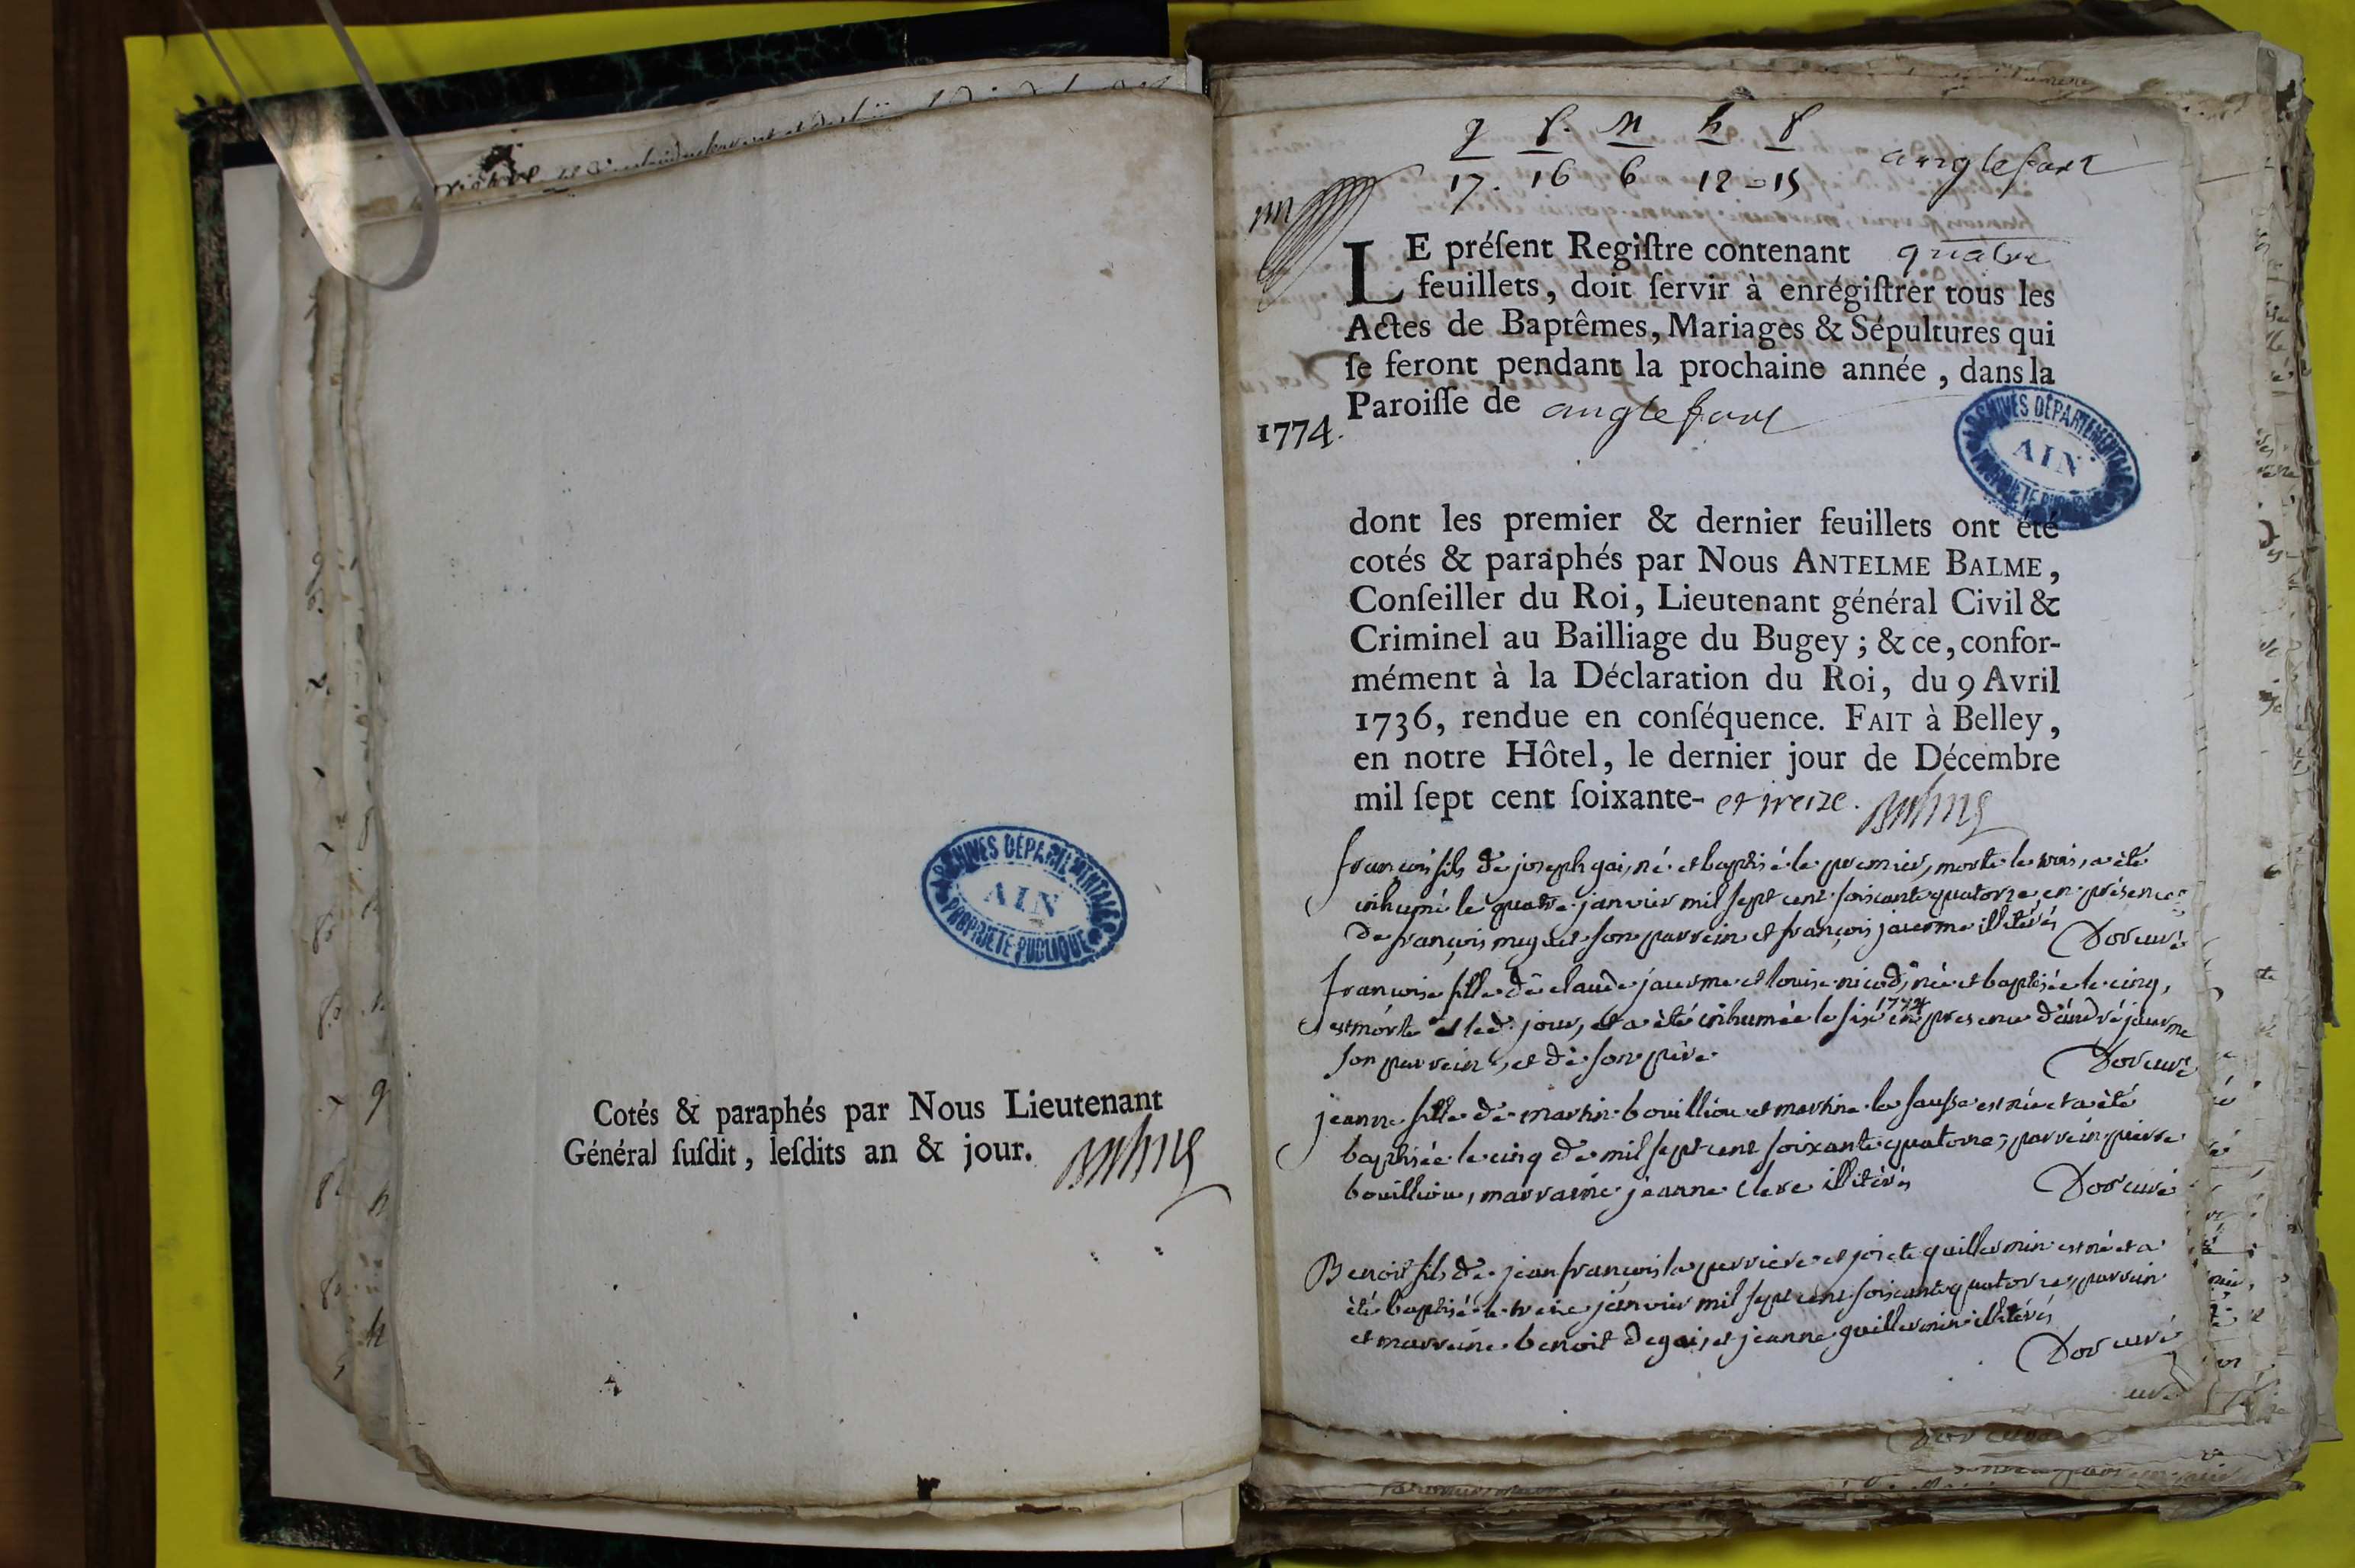 Cotés & paraphés par Nous Lieutenant
Général ſuſdit, leſdits an & jour.
ARCHIVES DÉPARTEMENTALES
AIN
PROPRIETE PUBLIQUE
g g. m h g
17. 16 6 12=15
anglefort
LE préſent Regiſtre contenant quatre
feuillets, doit ſervir à enrégiſtrer tous les
Actes de Baptêmes, Mariages & Sépultures qui
ſe feront pendant la prochaine année, dans la
Paroiſſe de anglefort
1774.
ARCHIVES DÉPARTEMENTALES
AIN
PROPRIETE PUBLIQUE
dont les premier & dernier feuillets ont été
cotés & paraphés par Nous ANTELME BALME,
Conſeiller du Roi, Lieutenant général Civil &
Criminel au Bailliage du Bugey ; & ce, confor-
mément à la Déclaration du Roi, du 9 Avril
1736, rendue en conſéquence. FAIT à Belley,
en notre Hôtel, le dernier jour de Décembre
mil ſept cent ſoixante- et treize. Balme
françois fils de joseph gai, né et baptisé le premier, morte le trois, a été
inhumé le quatre janvier mil sept cent soixante quatorze, en présence
de françois muguet son parrein et françois jaierme illitérés Dor curé
françoise fille de claude jaierme et louise nicod, née et baptisée le cinq,
est morte led. jour, et a été inhumée le six 1774 en presence d'andré jaierme
son parrein, et de son père Dor curé
jeanne fille de martin bouilliou et martine la sausse est née et a été
baptisée le cinq de mil sept cent soixante quatorze, parrein pierre
bouilliou, marraine jeanne clerc illitérés Dor curé
Benoit fils de jean françois la perriere et josete guillermin est né et a
été baptisé le treize janvier mil sept cent soixante quatorze, parrein
et marreine benoit degai, et jeanne guillermin illitérés
Dor curé